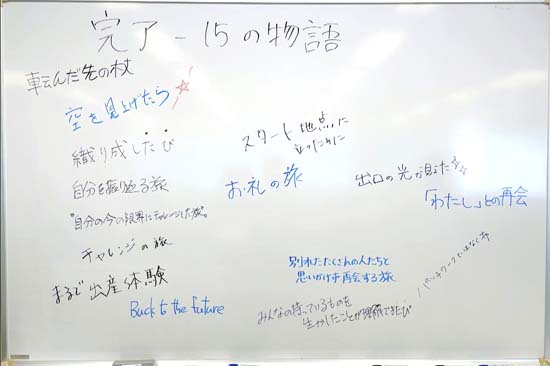 完了－15の物語
転んだ先の杖
空を見上げたら☆
織り成したび
スタート地点に
立つために
自分を振り返る旅
お礼の旅
出口の光が見えた
「わたし」との再会
"自分の今の限界にチャレンジした旅"。
チャレンジの旅
まるで出産体験
別れたたくさんの人たちと
思いがけず再会する旅
Back to the future
みんなの持っているものを
生かしたことが
パッチワークではなく布